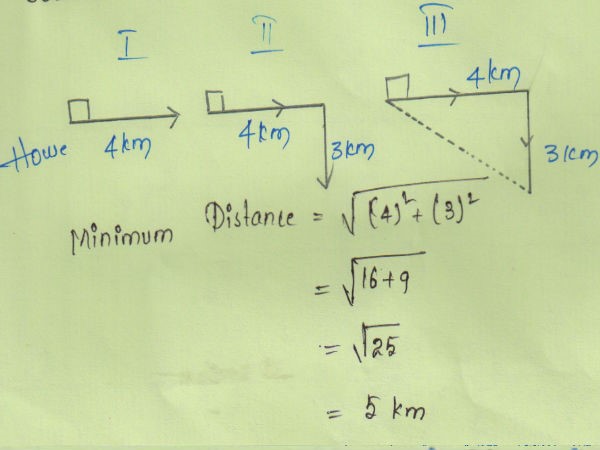 I II III
4km
Howe 4km 4km 3km 3km
Minimum Distance = √(4)² + (3)²
= √16+9
= √25
= 5 km